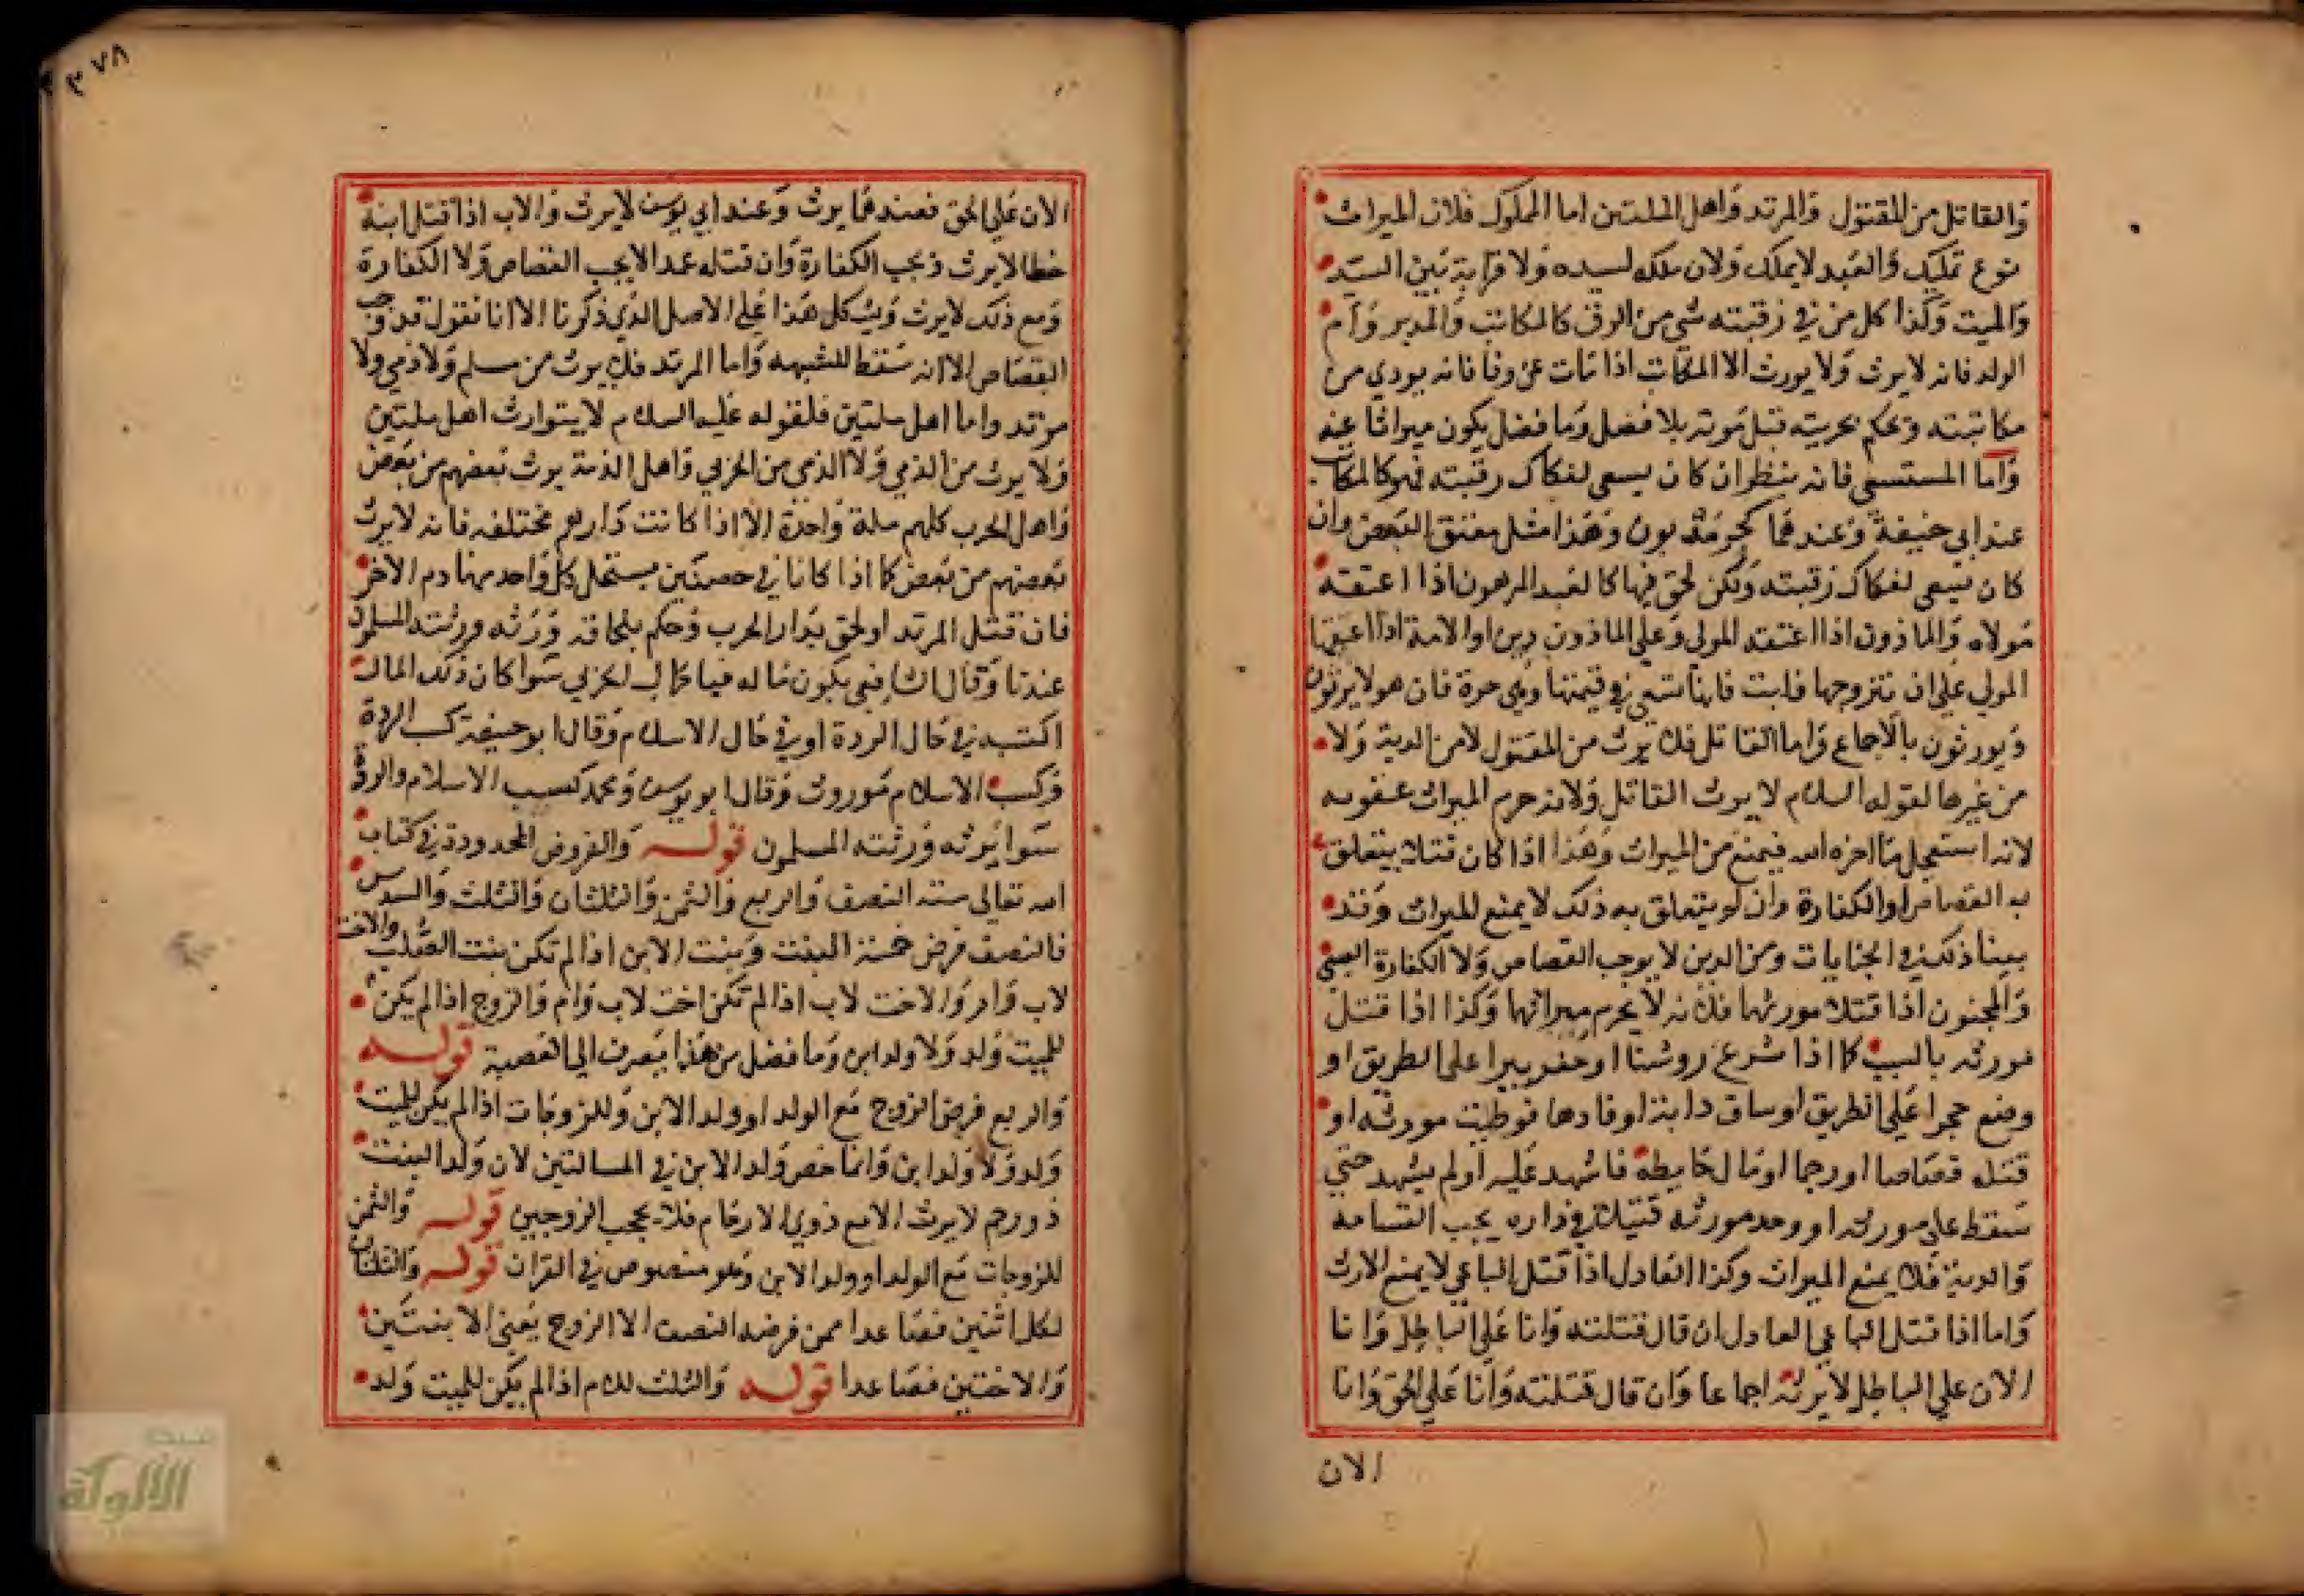 والقاتل من المقتول والمرتد واهل الملتين اما المملوك فلان الميراث
نوع تمليك والعبد لا يملك ولان ملكه لسيده ولا قرابة بين السيد
والميت وكذا كل من في رقبته شي من الرق كالمكاتب والمدبر وام
الولد فانه لا يرث ولا يورث الا المكاتب اذا مات عن وفا فانه يودي من
مكاتبته ويحكم بحريته قبل موته بلا فصل وما فضل يكون ميراثا عنه
واما المستسعي فانه ينظر ان كان يسعى لفكاك رقبته فهو كالمكاتب
عند ابي حنيفة وعندهما كحر مديون وهذا مثل معتق البعض وان
كان يسعى لفكاك رقبته ولكن لحق فيها كالعبد المرهون اذا اعتقه
مولاه والماذون اذا اعتقه المولى وعلى الماذون دين او الامة اذا اعتقها
المولي على ان يتزوجها فابت فانها تسعي في قيمتها وهي حرة فان هولا يرثون
ويورثون بالاجماع واما القاتل فلا يرث من المقتول لا من الدية ولا
من غيرها لقوله السلام لا يرث القاتل ولانه حرم الميراث عقوبه
لانه استعجل ما اخره الله فيمنع من الميراث وهذا اذا كان قتلا يتعلق
به القصاص او الكفارة وان لم يتعلق به ذلك لا يمنع الميراث وقد
بينا ذلك في الجنايات ومن الذين لا يوجب القصاص ولا الكفارة الصبي
والمجنون اذا قتلا مورثهما فلانه لا يحرم ميراثهما وكذا اذا قتل
مورثه بالسبب كما اذا شرع روشنا او حفر بيرا على الطريق او
وضع حجرا على الطريق او ساق دابة او قادها فوطيت مورثه او
قتله قصاصا او رجما او مال حايطه فاشهد عليه او لم يشهد حتي
سقط على مورثه او وجد مورثه قتيلا في داره يجب القسامة
والدية فلا يمنع الميراث وكذا العادل اذا قتل الباغي لا يمنع الارث
واما اذا قتل الباغي العادل ان قال قتلته وانا على الباطل وانا
الان علي الباطل لا يرثه اجماعا وان قال قتلته وانا على الحق وانا
الان
٣٧٨
الان علي الحق فعندهما يرث وعند ابي يوسف لا يرث والاب اذا قتل ابنه
خطا لا يرث ويجب الكفارة وان قتله عمدا لا يجب القصاص ولا الكفارة
ومع ذلك لا يرث كل هذا على الاصل الذي ذكرنا الا انا نقول قد وجب
القصاص الا انه سقط للشبهه واما المرتد فلا يرث من مسلم ولا ذمي ولا
مرتد واما اهل ملتين فلقوله عليه السلام لا يتوارث اهل ملتين
ولا يرث من الذمي ولا الذمي من الحربي واهل الذمة يرث بعضهم من بعض
واهل الحرب كلهم ملة واحدة الا اذا كانت دارهم مختلفه فانه لا يرث
بعضهم من بعض كما اذا كانا في حصنين يستحل كل واحد منهما دم الاخر
فان قتل المرتد او لحق بدار الحرب وحكم بلحاقه ورثه ورثته المسلمون
عندنا وقال الشافعي يكون ماله فيا كمال الحربي سوا كان ذلك المال
اكتسبه في حال الردة او في حال الاسلام وقال ابو حنيفة كسب الردة
وكسب الاسلام موروث وقال ابو يوسف ومحمد كسب الاسلام والردة
سوا يرثه ورثته المسلمون قوله والفروض المحدودة في كتاب
الله تعالى ستة النصف والربع والثمن والثلثان والثلث والسدس
فالنصف فرض خمسة البنت وبنت الابن اذا لم تكن بنت الصلب والاخت
لاب وام والاخت لاب اذا لم تكن اخت لاب وام والزوج اذا لم يكن
للميت ولد ولا ولد ابن وما فضل من هذا يصرف الى العصبة قوله
والربع فرض الزوج مع الولد او ولد الابن وللزوجات اذا لم يكن للميت
ولد ولا ولد ابن وانما خص ولد الابن في المسالتين لان ولد البنت
ذو رحم لا يرث الا مع ذوي الارحام فلا يحجب الزوجين قوله والثمن
للزوجات مع الولد او ولد الابن وهو منصوص في القران قوله والثلثان
لكل اثنين فصاعدا ممن فرضه النصف الا الزوج يعني الابنتين
والاختين فصاعدا قوله والثلث للام اذا لم يكن للميت ولد
الألوكة